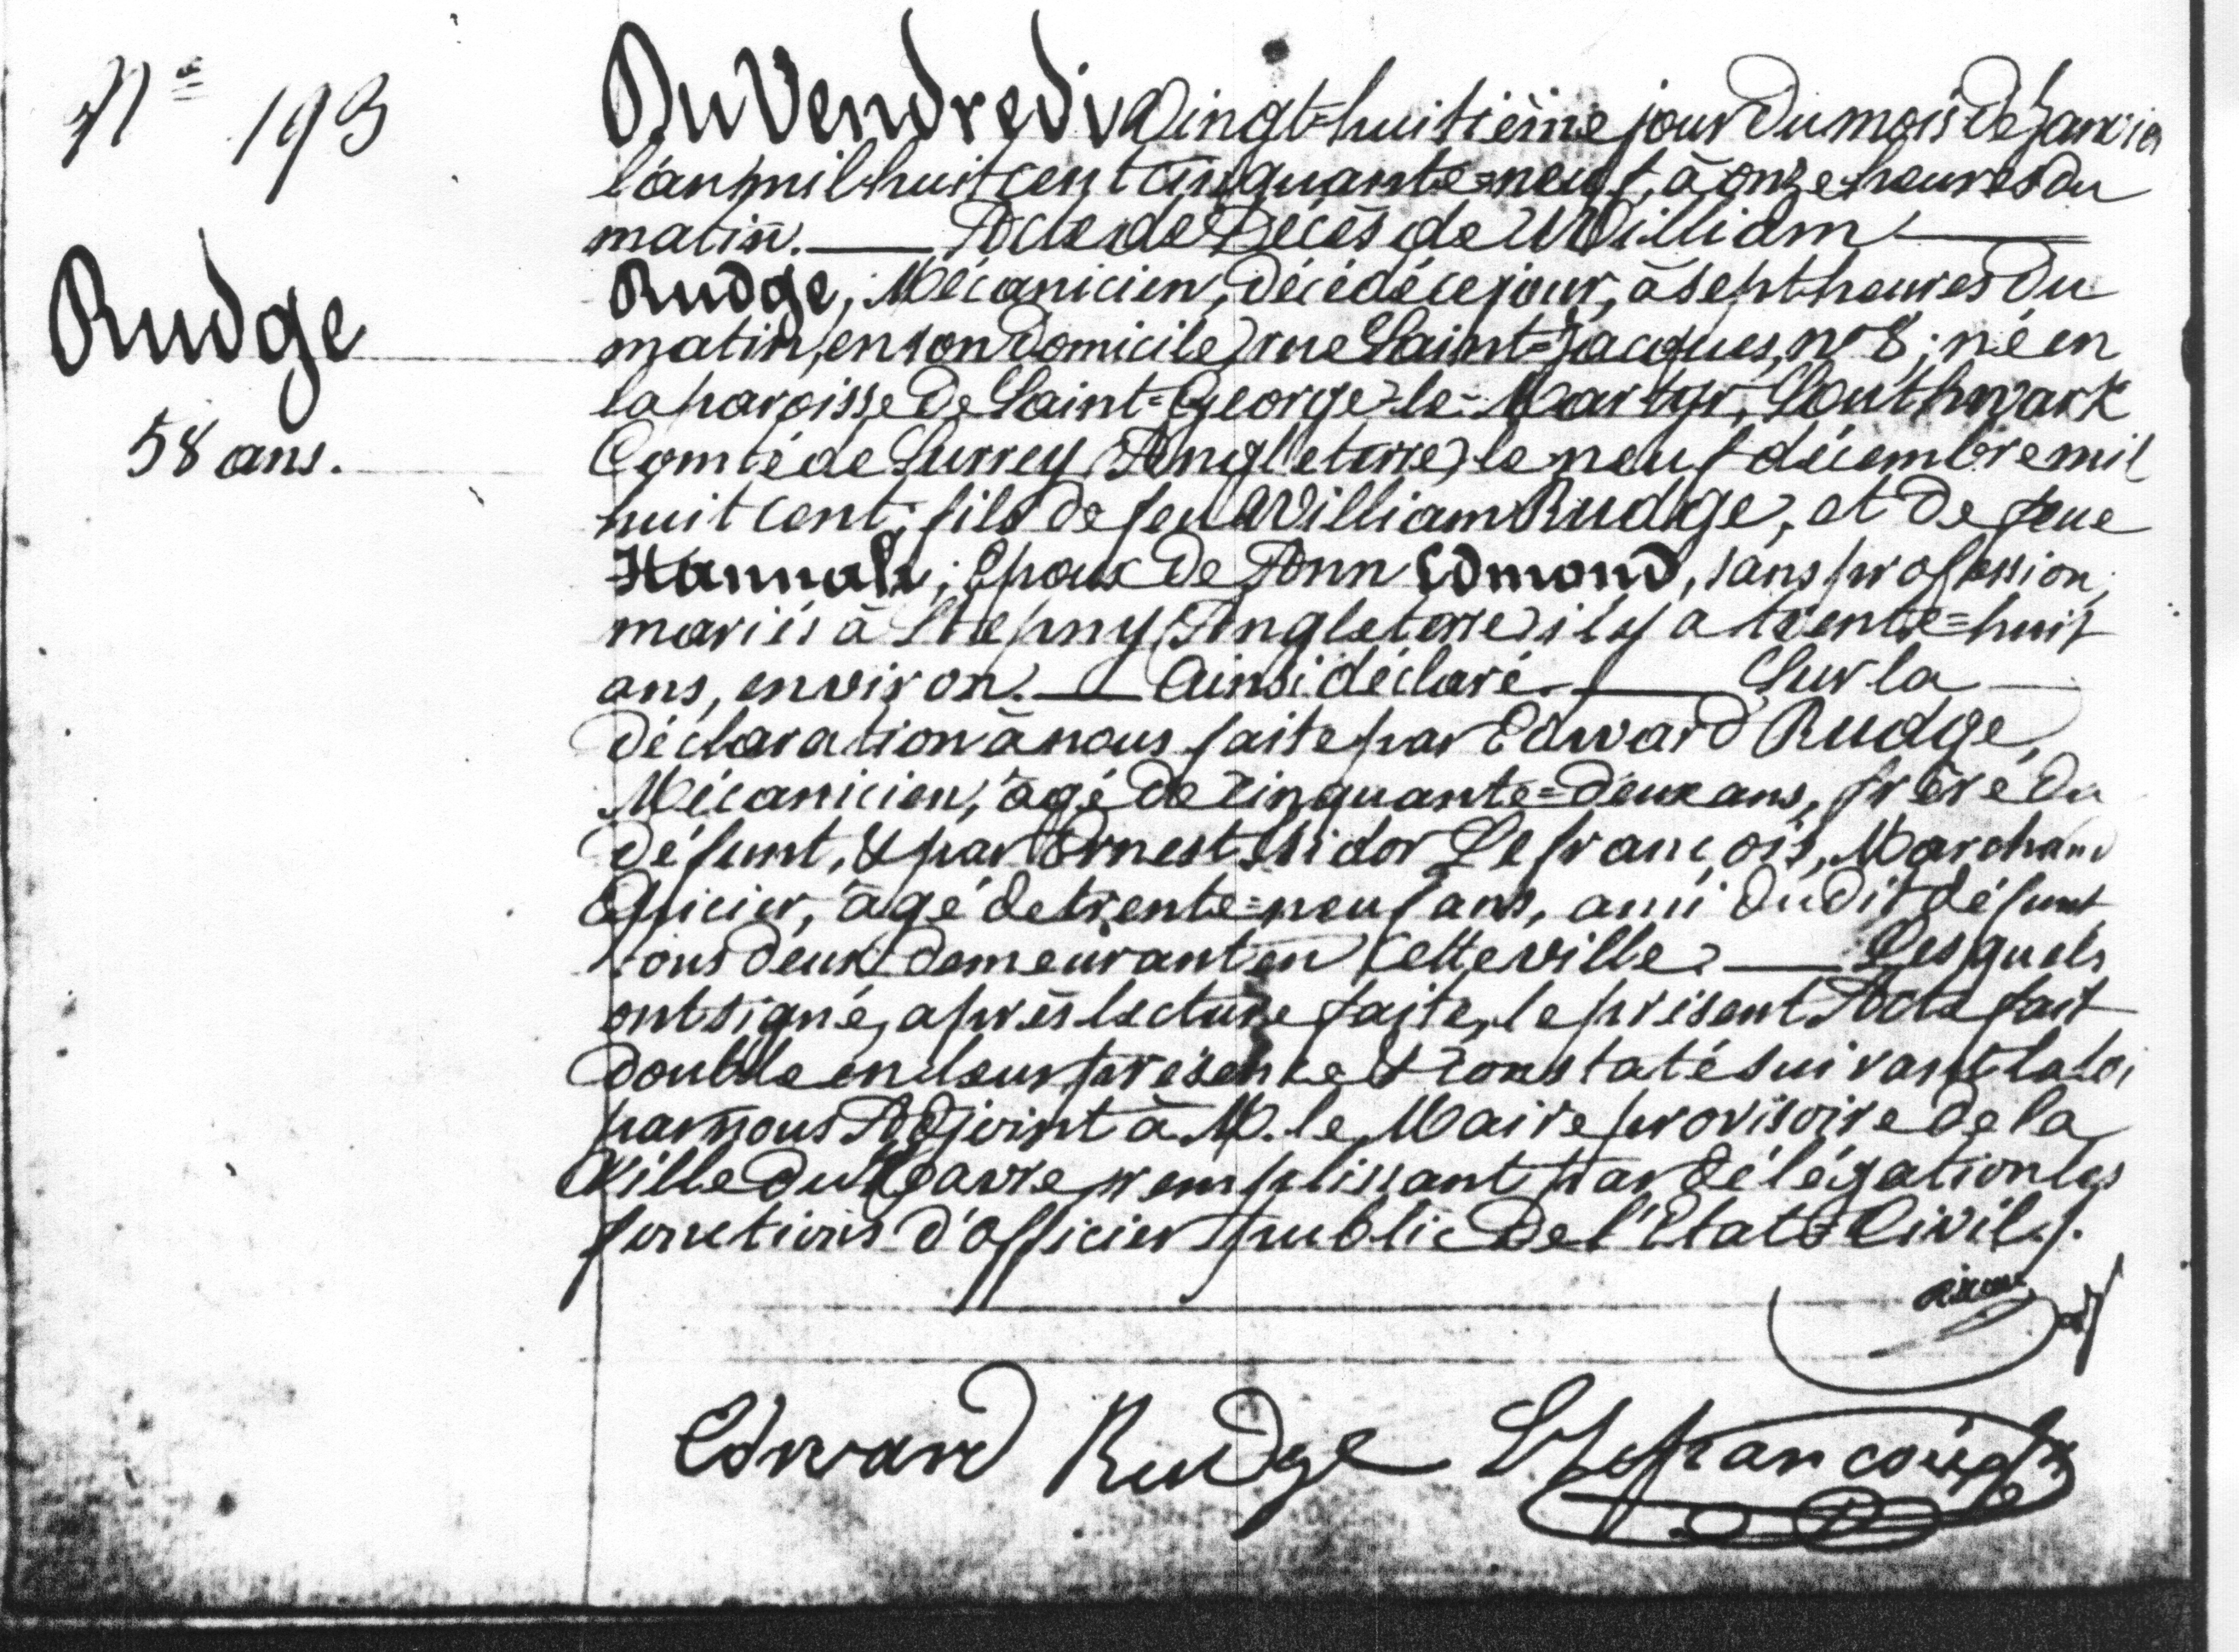 Nº 193
Du Vendredi Vingt=huitième jour du mois de Janvier
l'an mil huit cent cinquante=neuf, à onze heures du
matin. — Acte de Décès de William —
Rudge, Mécanicien, décédé ce jour, à sept heures du
Rudge
matin, en son domicile, rue Saint=Jacques, nº 8; né en
la paroisse de Saint=George=le=Martyr, Southwark
58 ans.
Comté de Surrey (Angleterre) le neuf décembre mil
huit cent; fils de feu William Rudge, et de feue
Hannah; Epoux de Ann Edmond, sans profession,
mariés à Stepny (Angleterre) il y a trente=huit
ans, environ. — Ainsi déclaré. — Sur la —
déclaration à nous faite par Edward Rudge,
Mécanicien, âgé de cinquante=deux ans, frère du
défunt, & par Ernest Isidor Lefrançois, Marchand
Epicier, âgé de trente=neuf ans, ami dudit défunt
tous deux demeurant en cette ville — Lesquels
ont signé, après lecture faite, le présent Acte fait
double en leur présence & constaté suivant la loi
par nous Adjoint à M. le Maire provisoire de la
Ville du Havre, remplissant par délégation les
fonctions d'officier public de l'Etat=Civil.
Edward Rudge Lefrancois